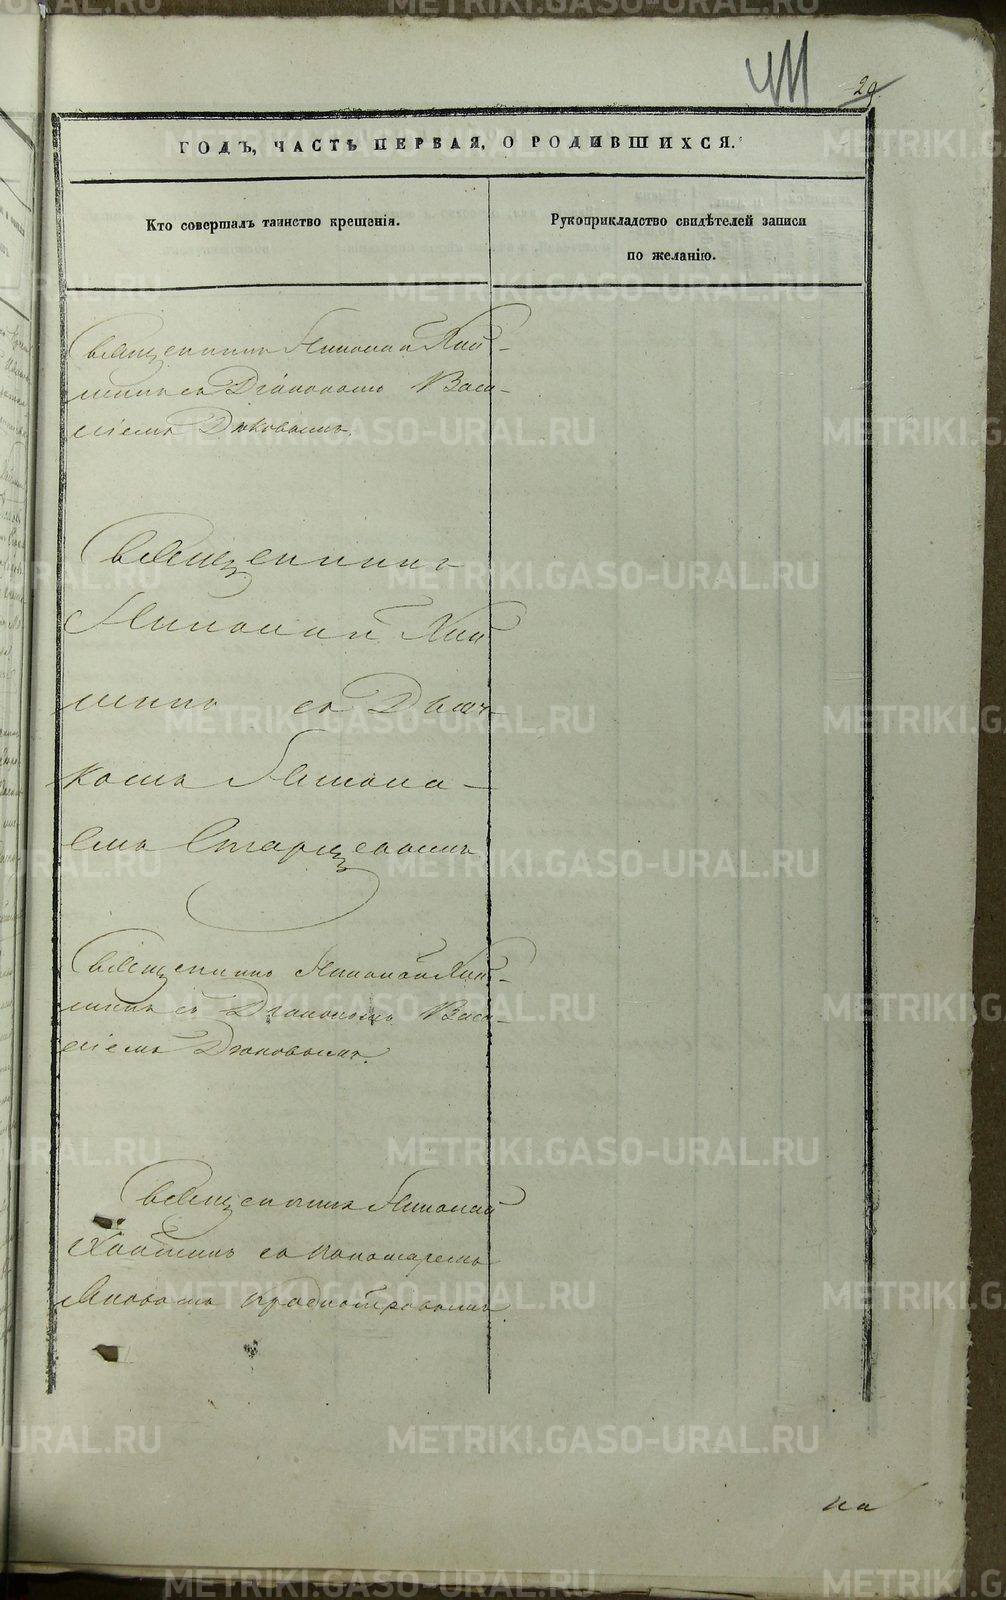 29
ГОДЪ, ЧАСТЬ ПЕРВАЯ, О РОДИВШИХСЯ.
Кто совершалъ таинство крещенія.
Рукоприкладство свидѣтелей записи
по желанію.
Священникъ Николай Хай-
минъ съ Діакономъ Васи-
ліемъ Дьяковымъ.
Священникъ
Николай Хай
минъ съ Дьяч
комъ
Священникъ Николай Хай-
минъ съ Діакономъ Васи-
ліемъ Дьяковымъ.
Священникъ Николай
съ пономаремъ
на
METRIKI.GASO-URAL.RU